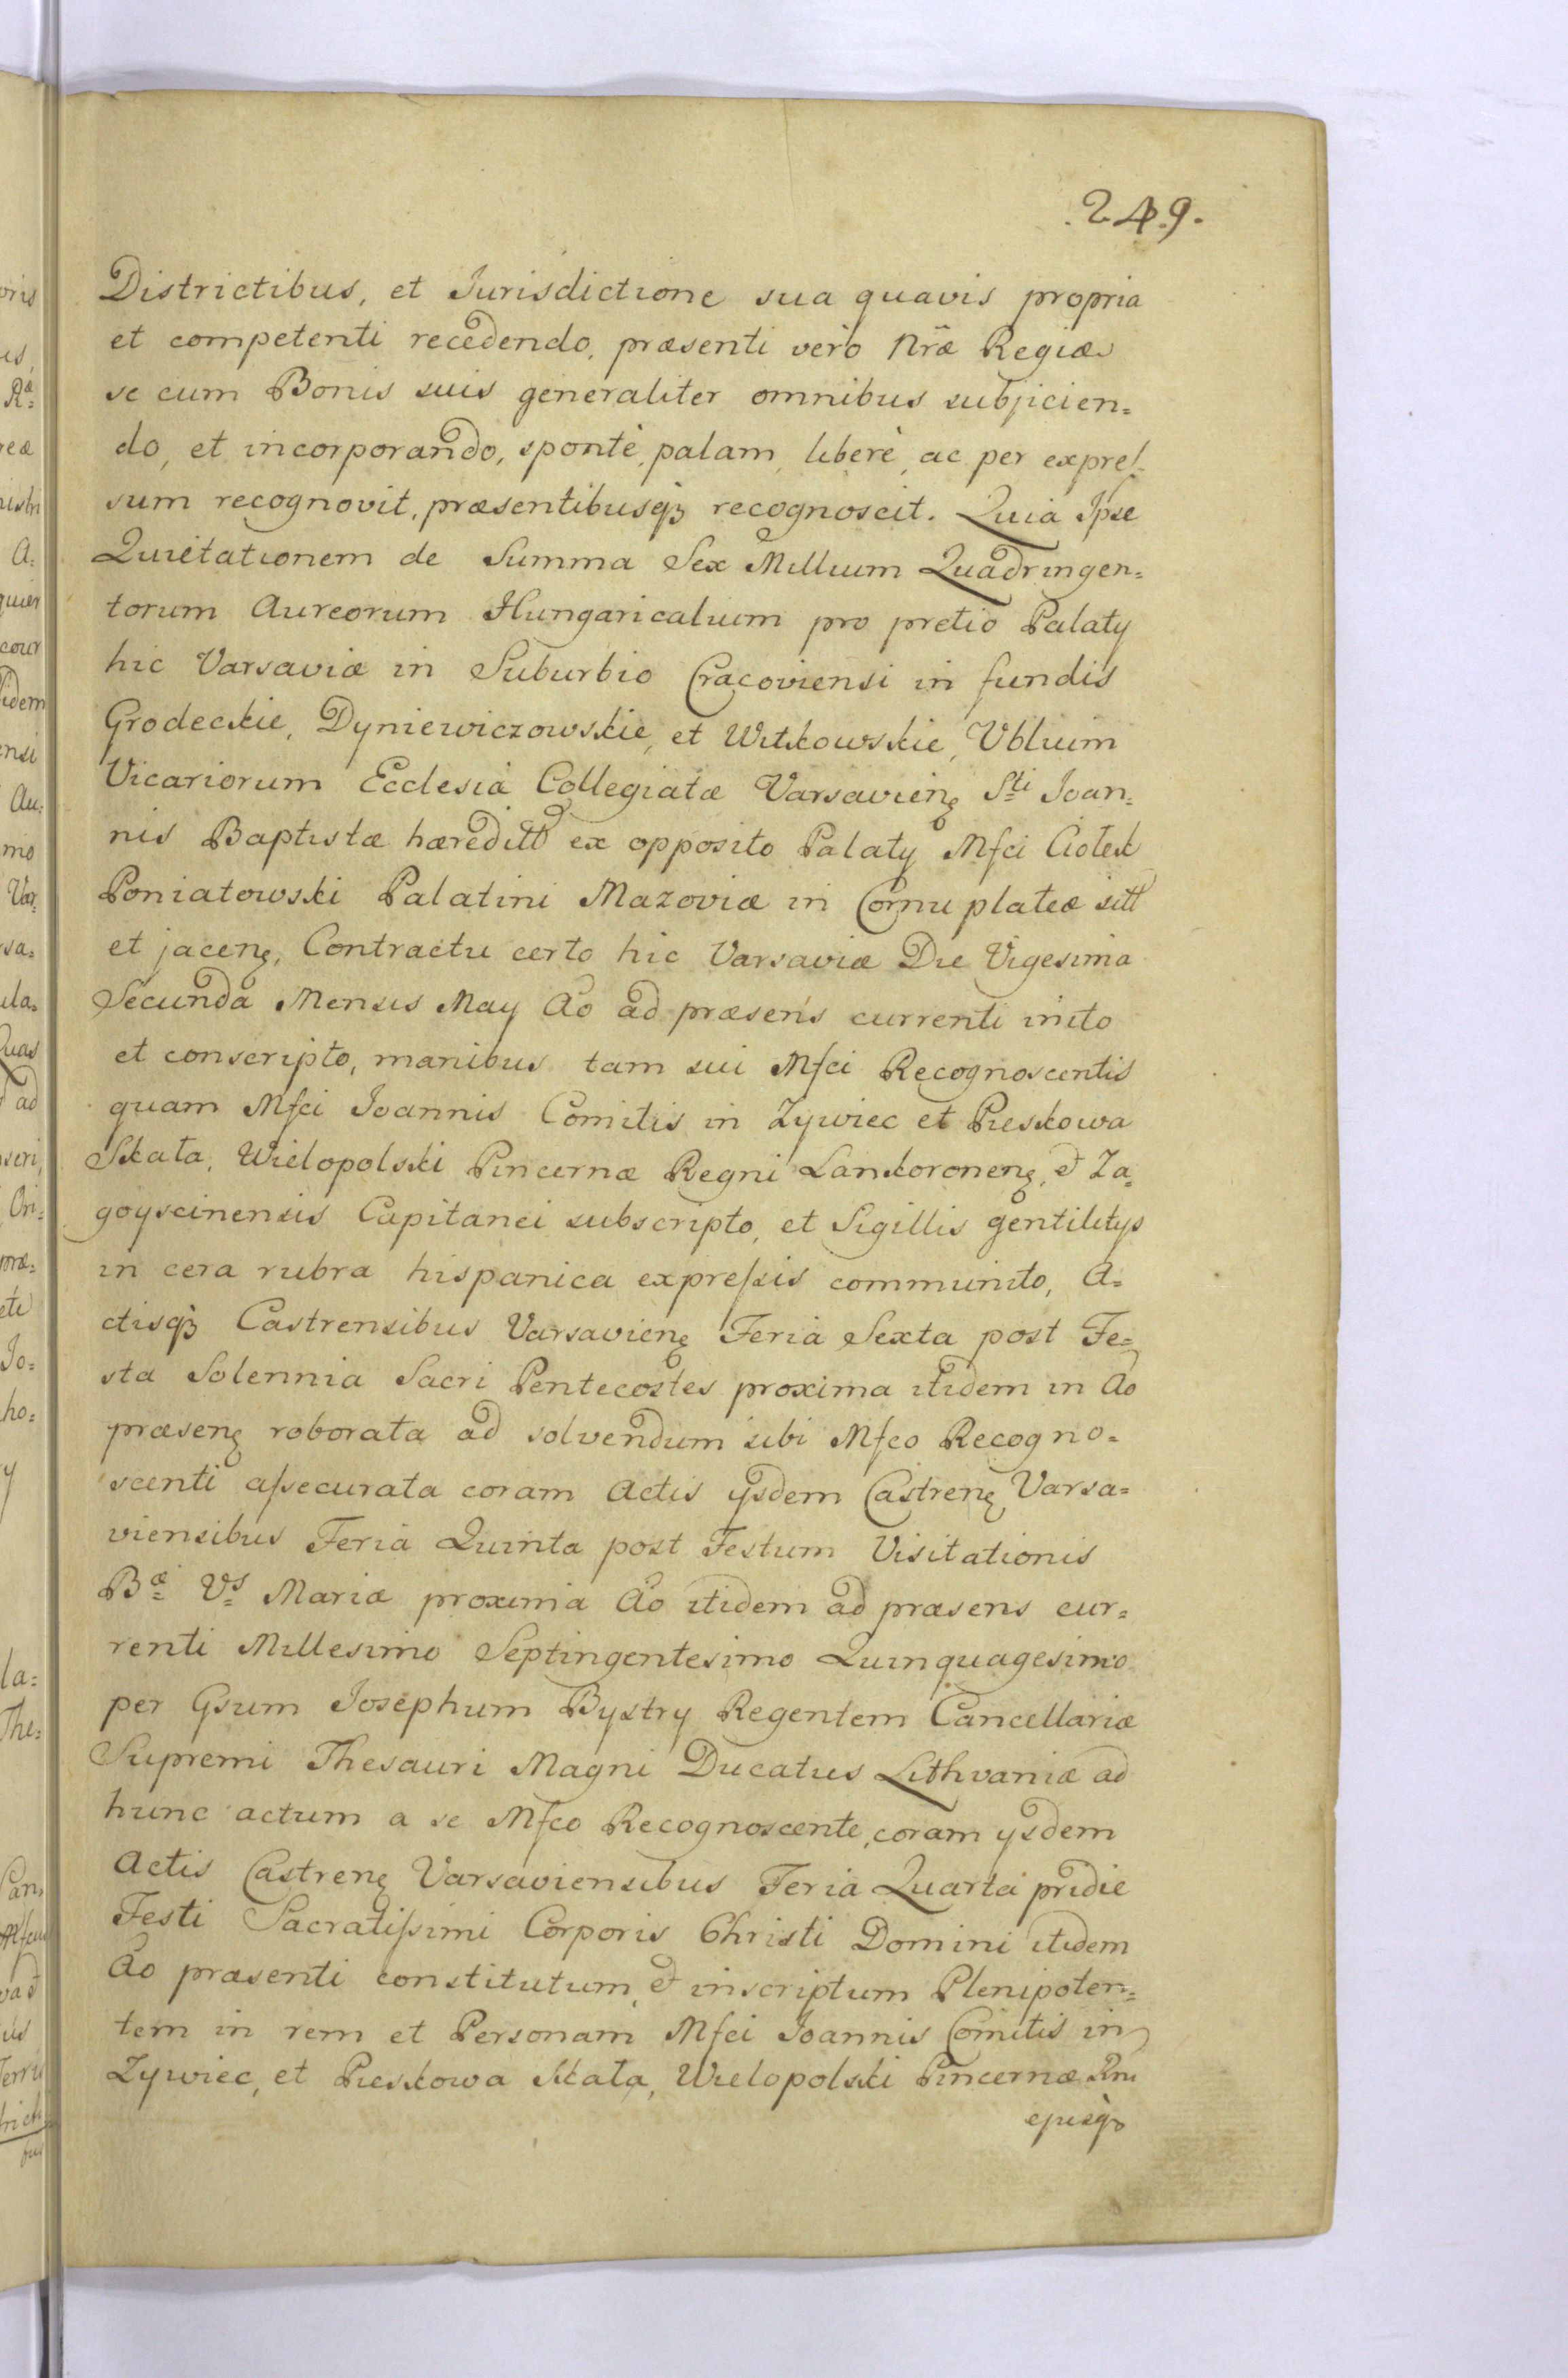 .249.
Districtibus, et Jurisdictione sua quavis propria
et competenti recedendo, præsenti vèro Nræ Regiæ
se cum Bonis suis generaliter omnibus subjicien=
do, et incorporando, spontè, palam, liberè, ac per expres-
sum recognovit, præsentibusq3 recognoscit. Quia Ipse
Quietationem de Summa Sex Millium Quadringen=
torum Aureorum Hungaricalium pro pretio Palaty
hic Varsaviæ in Suburbio Cracoviensi in fundis
Grodeckie, Dyniewiczowskie, et Witkowskie, Vblium
Vicariorum Ecclesiæ Collegiatæ Varsavienę Sti Joan=
nis Baptistæ hæreditt ex opposito Palaty Mfci Ciołek
Poniatowski Palatini Mazoviæ in Cornu plateæ sitt
et jacenę, Contractu certo hic Varsaviæ Die Vigesima
Secunda Mensis May Ao ad præsens currenti inito
et conscripto, manibus tam sui Mfci Recognoscentis
quam Mfci Joannis Comitis in Zywiec et Pieskowa
Skała, Wielopolski Pincernæ Regni Lanckoronenę, et Za=
goyscinensis Capitanei subscripto, et Sigillis gentilitys
in cera rubra hispanica expressis communito, A=
ctisq3 Castrensibus Varsavienę Feria Sexta post Fe=
sta Solennia Sacri Pentecostes proxima itidem in Ao
præsenę roborata ad solvendum sibi Mfco Recogno=
scenti assecurata coram Actis ysdem Castrenę Varsa=
viensibus Feria Quinta post Festum Visitationis
Bæ Vs Mariæ proxima Ao itidem ad præsens cur=
renti Millesimo Septingentesimo Quinquagesimo
per Gsum Josephum Bystry Regentem Cancellariæ
Supremi Thesauri Magni Ducatus Lithvaniæ ad
hunc actum a se Mfco Recognoscente, coram ysdem
Actis Castrenę Varsaviensibus Feria Quarta pridie
Festi Sacratissimi Corporis Christi Domini itidem
Ao præsenti constitutum, et inscriptum Plenipoten=
tem in rem et Personam Mfci Joannis Comitis in
Zywiec, et Pieskowa Skała, Wielopolski Pincernæ Rni
ejusq3